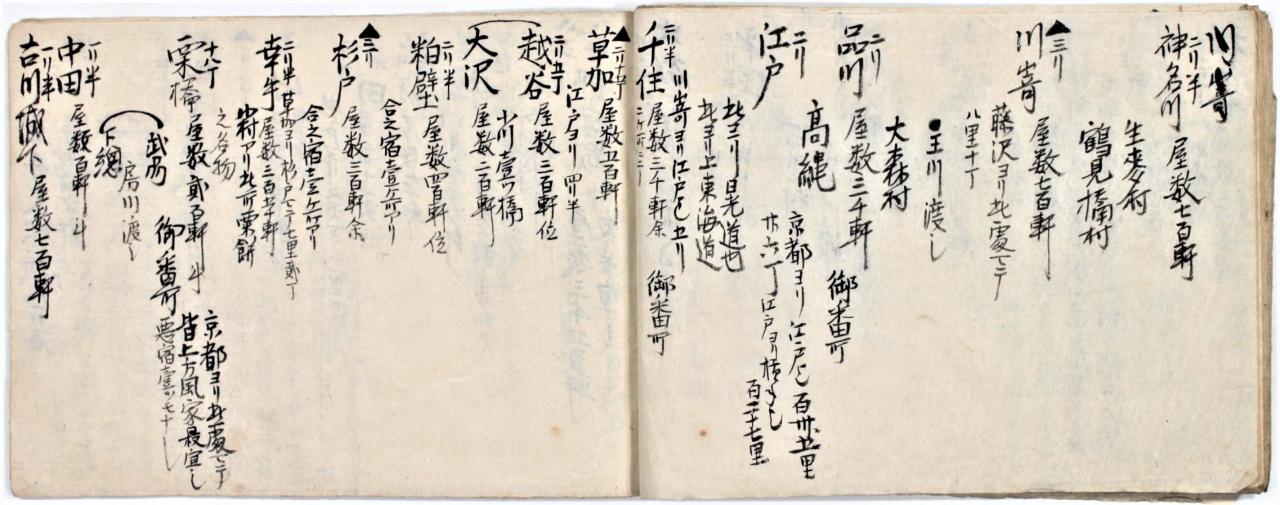 川嵜
二リ半
神名川 屋数七百軒
生麦村
鶴見橋村
▲三リ
川嵜 屋数七百軒
藤沢ヨリ此処マテ
八里十丁
●玉川渡し
大森村
二リ
品川 屋数三千軒 御番所
高縄
京都ヨリ江戸迄百廿五里
廿六丁江戸ヨリ
百二十七里
二リ
江戸
此ヨリ日光道也
此ヨリ上東海道
川嵜ヨリ江戸迄五リ
二リ半
千住 屋数三千軒余 御番所
▲二リ
草加 屋数五百軒
江戸ヨリ四リ半
越谷 屋数三百軒位
小川壹ツ橋
大沢 屋数二百軒
二リ半
粕壁 屋数四百軒位
合之宿壹ケ所アリ
▲三リ
杉戸 屋数三百軒余
合之宿壹ケ所アリ
草加ヨリ杉戸マテ七里弐丁
二リ半
幸手 屋数三百五十軒
小村アリ此所粟餅
之名物
十八丁
栗橋 屋数弐百軒斗
京都ヨリ此処マテ
皆上方風家最宜し
御番所 悪宿壹ツモナし
武州
房川渡し
下總
一リ半
中田 屋数百軒斗
一リ半
古川城下 屋数七百軒